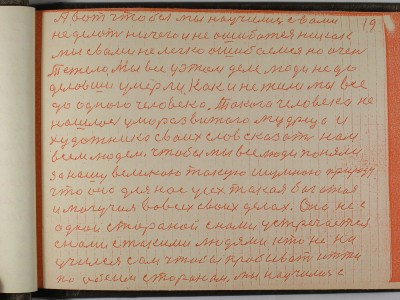 А вот чтобы мы научились с вами 19
не делать ничего и не ошибаться никак
мы с вами не легко ошибаемся но очень
тежело. Мы все у этом деле люди не до
деловши умерли. Как и не жили мы все
до одного человека. Такого человека не
нашлося ума развитого мудрца и
художника своих слов сказать нам
всем людям. чтобы мы все люди поняли
за нашу великою такую и шумною природу
что оно для нас усех такая богатая
и могучия во всех своих делах. Оно не с
одной стараной с нами устречается
с нами с такими людями, кто не на
учился сам чтобы пробывать итти
по обеем старанам, мы научилися с